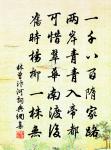 一千八百隋家路
兩岸青青入帝都
可惜翠華南渡後
舊時楊柳一株無
林景沂河詞興佩甫